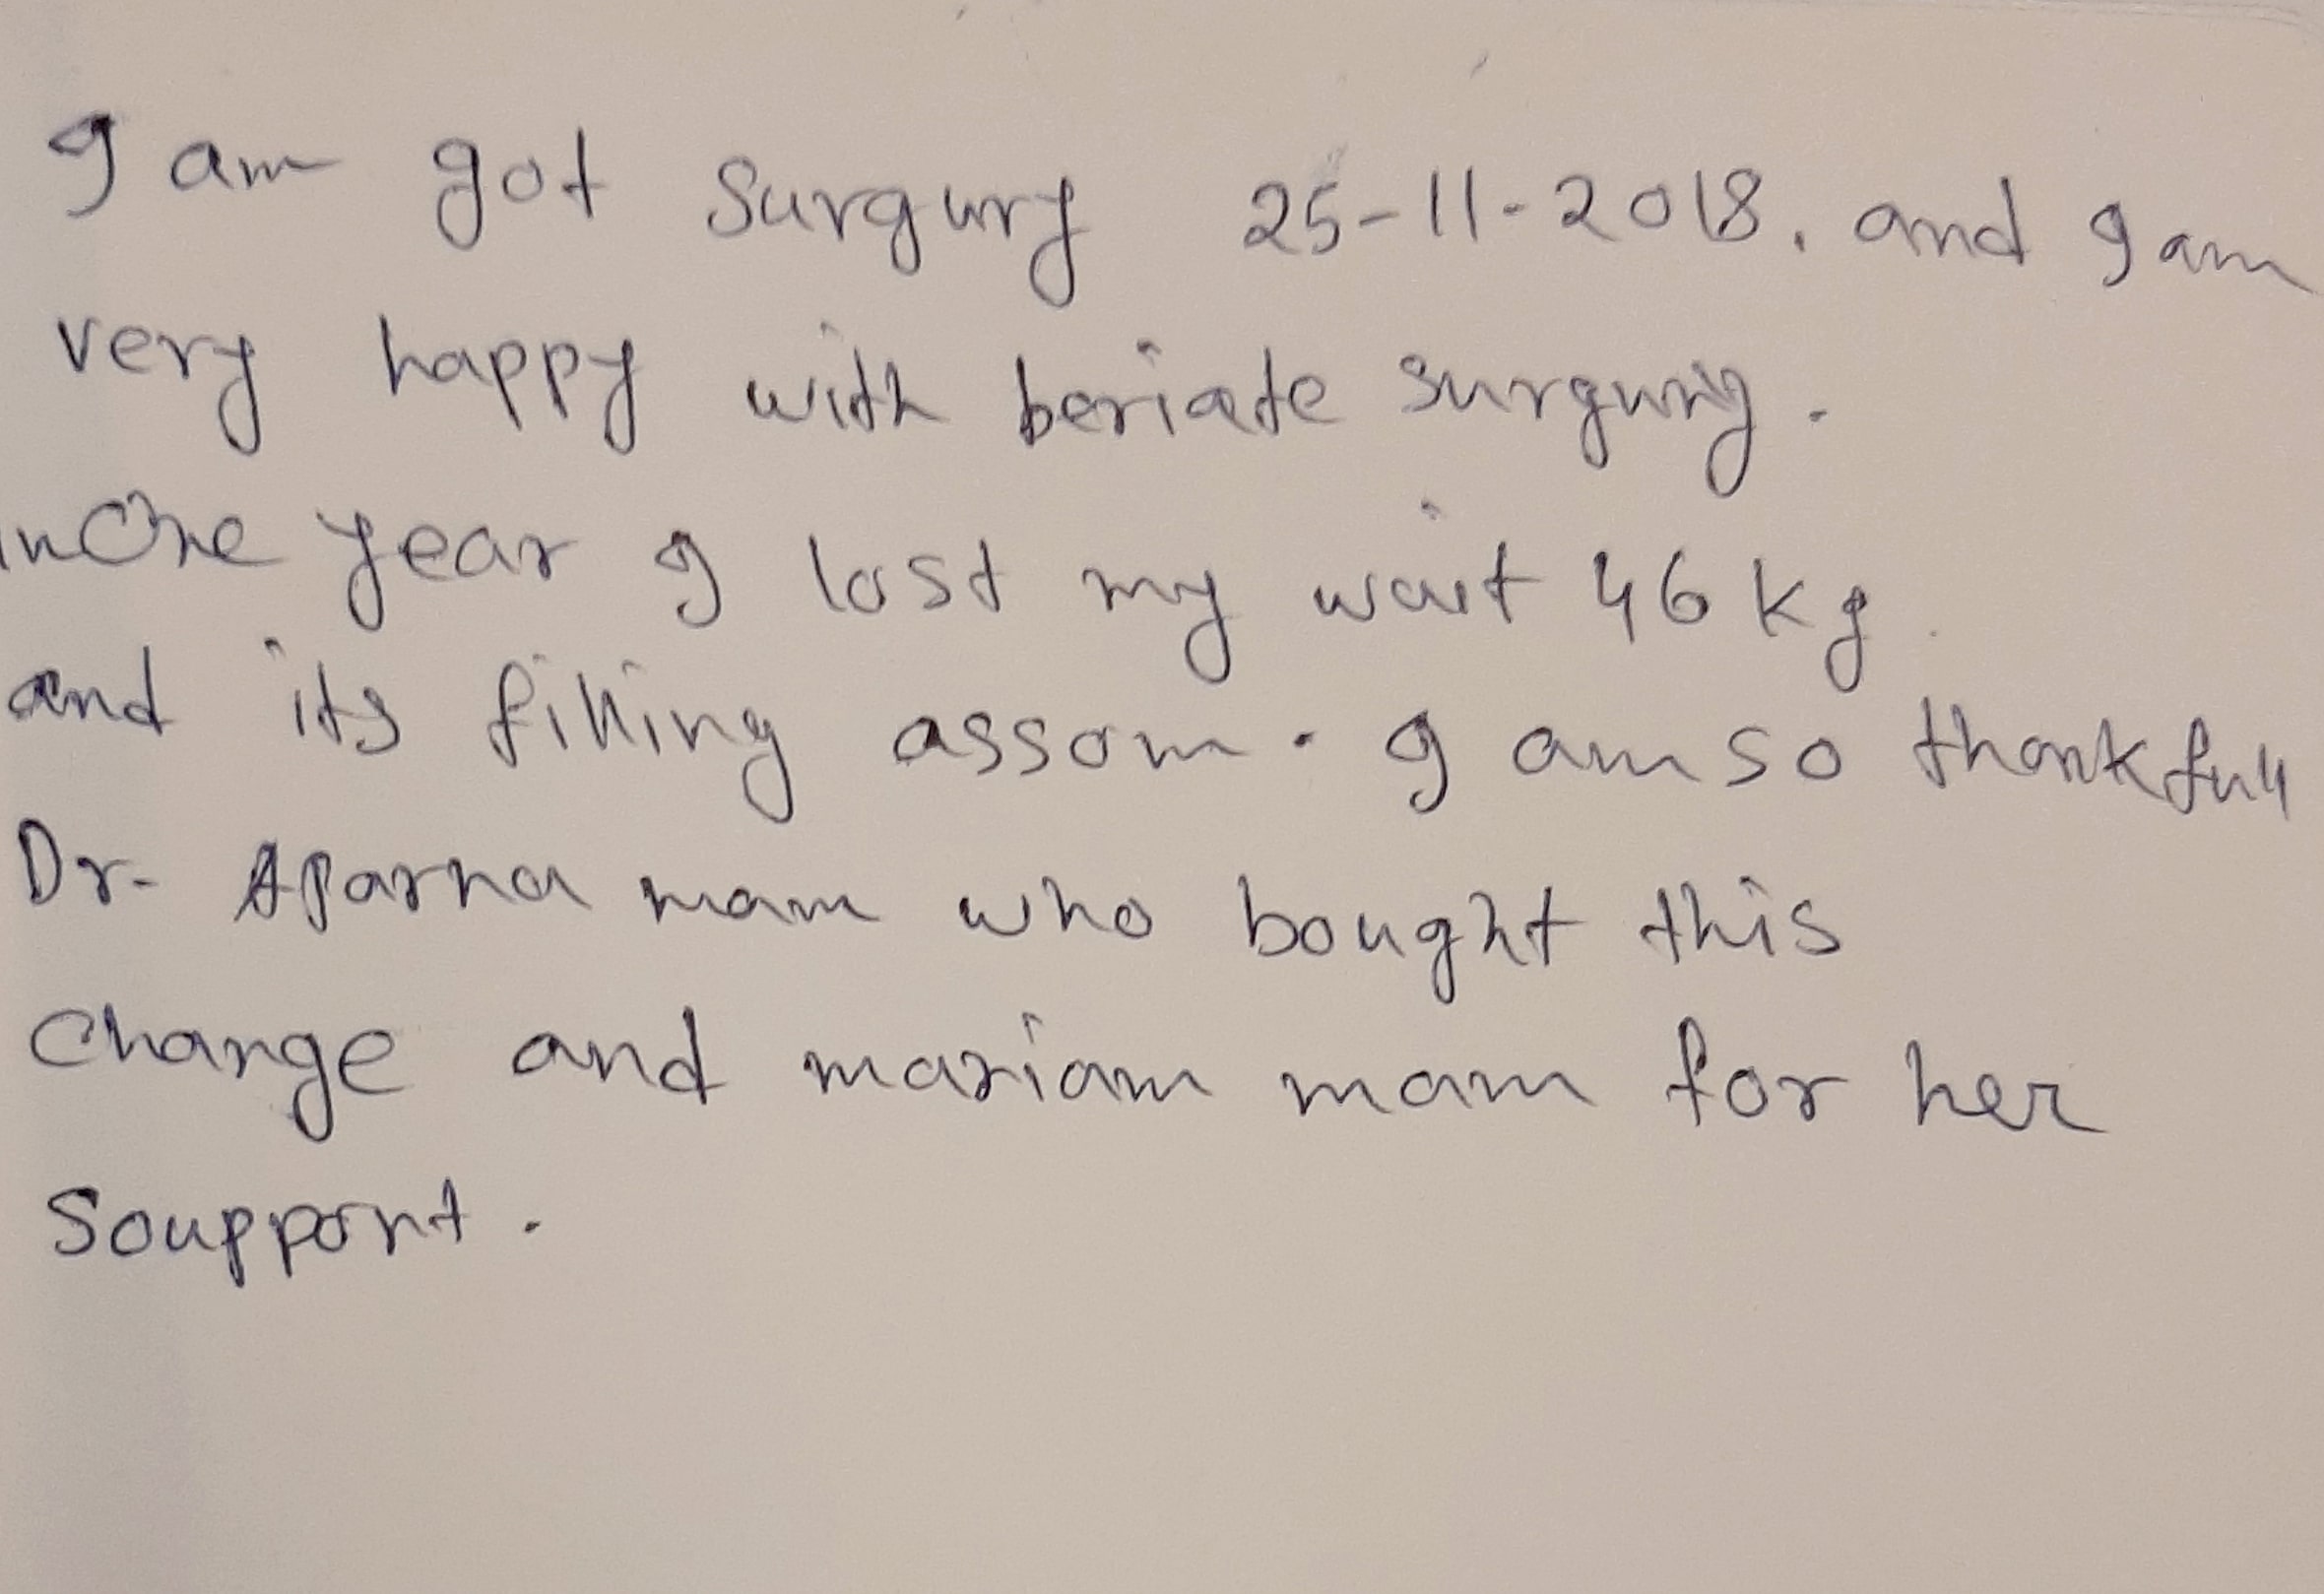 I am got Surgury 25-11-2018. and I am
very happy with beriate surgury.
in One year I lost my wait 46 kg
and its filling assom. I am so thankfull
Dr. Aparna mam who bought this
Change and mariam mam for her
Souppornt.